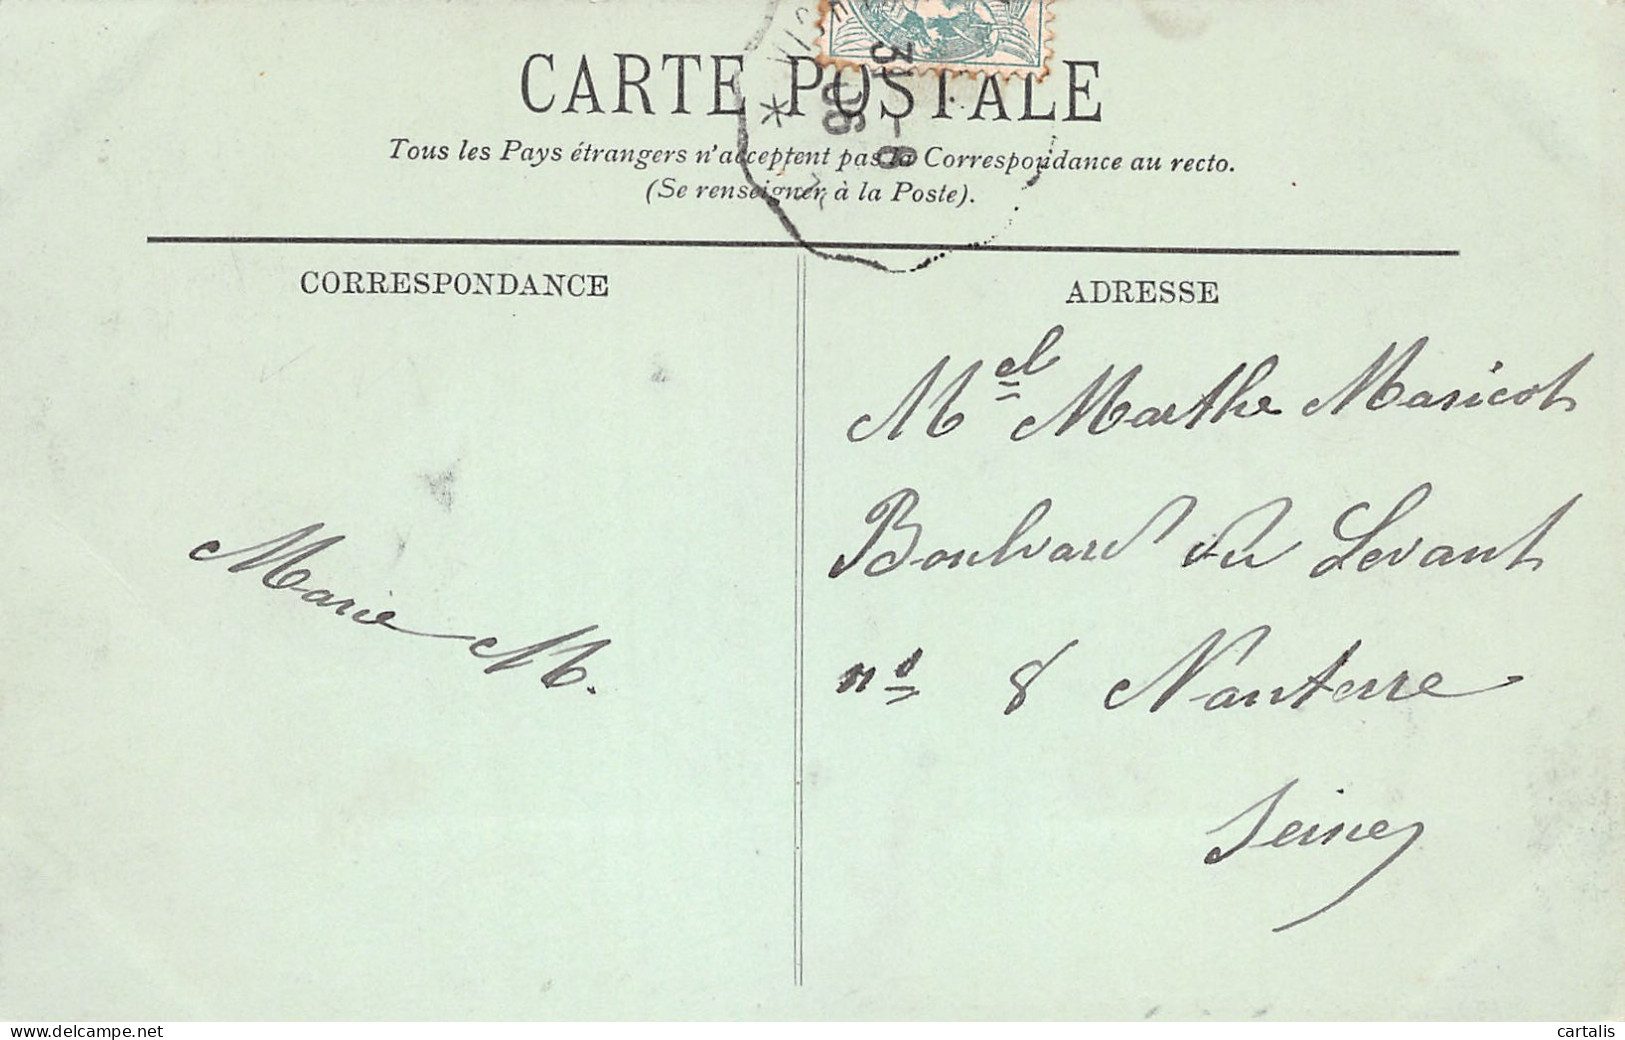 CARTE POSTALE
Tous les Pays étrangers n'acceptent pas la Correspondance au recto.
(Se renseigner à la Poste).
31 - 8
06
CORRESPONDANCE
ADRESSE
Mel Marthe Maricot
Boulvard du Levant
no 8 Nanterre
Seine
Marie M.
www.delcampe.net
cartalis